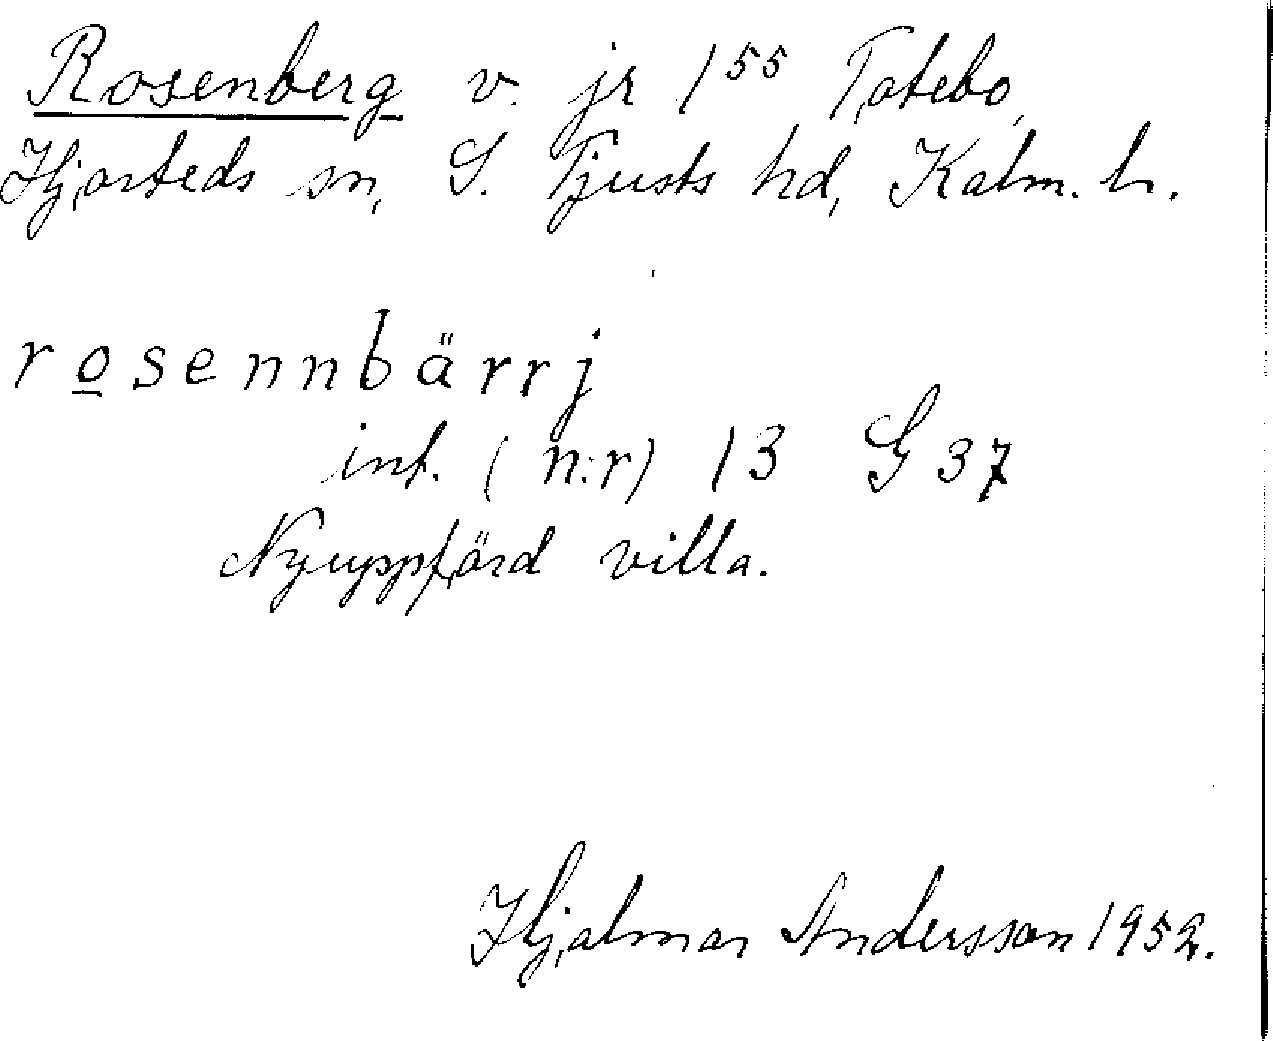 Rosenberg v. jr 1⁵⁵ Tatebo,
Hjorteds sn, S. Tjusts hd, Kalm. l.
rosennbärrj
inf. (n:r) 13 G 37
Nyuppförd villa.
Hjalmar Andersson 1952.